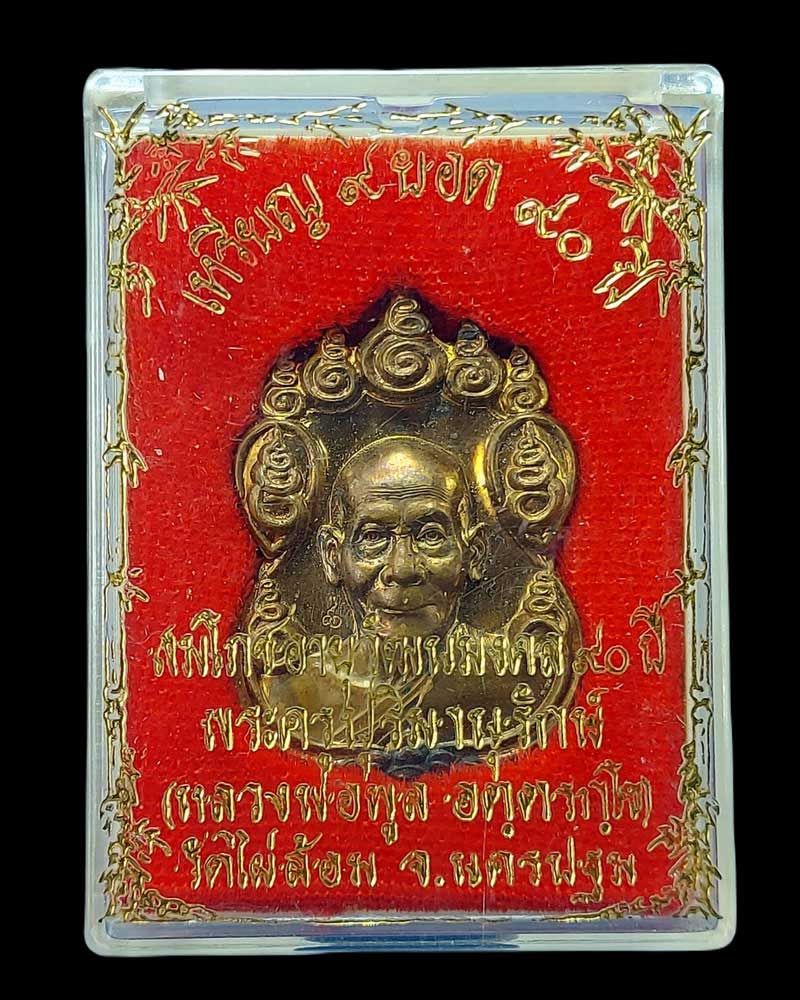 เหรียญ ๙ ยอด ๙๐ ปี
สมโภชอายุวัฒนมงคล ๙๐ ปี
พระครูปุริมานุรักษ์
(หลวงพ่อพูล อตฺตรกฺโข)
วัดไผ่ล้อม จ.นครปฐม